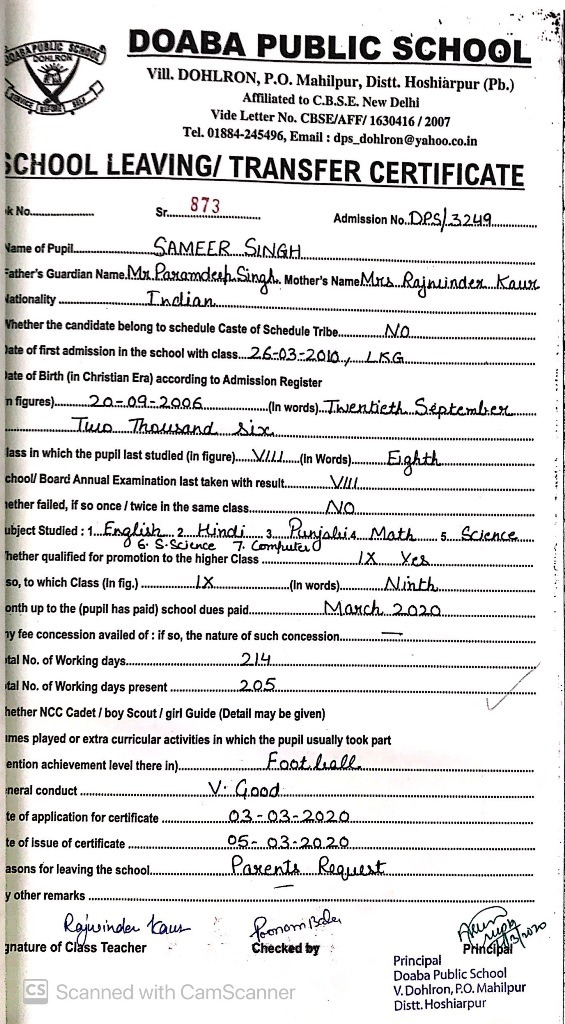 DOABA PUBLIC SCHOOL
DOHLRON
SERVICE BEFORE SELF
DOABA PUBLIC SCHOOL
Vill. DOHLRON, P.O. Mahilpur, Distt. Hoshiarpur (Pb.)
Affiliated to C.B.S.E. New Delhi
Vide Letter No. CBSE/AFF/ 1630416 / 2007
Tel. 01884-245496, Email : dps_dohlron@yahoo.co.in
SCHOOL LEAVING/ TRANSFER CERTIFICATE
k No.................... Sr....873............ Admission No.DPS/3249
Name of Pupil....SAMEER SINGH
Father's Guardian Name.Mr.Paramdeep Singh. Mother's Name Mrs Rajwinder Kaur
Nationality ....Indian
Whether the candidate belong to schedule Caste of Schedule Tribe....NO
Date of first admission in the school with class...26-03-2010, LKG
Date of Birth (in Christian Era) according to Admission Register
n figures)....20-09-2006....(In words)..Twentieth September
Two Thousand six
lass in which the pupil last studied (in figure)...VIII...(In Words)...Eighth
chool/ Board Annual Examination last taken with result...VIII
ether failed, if so once / twice in the same class...NO
ubject Studied : 1..English 2 Hindi 3 Punjabi 4 Math 5 Science
6. S.Science 7. Computer
hether qualified for promotion to the higher Class ...IX Yes
so, to which Class (In fig.) ...IX...(In words)...Ninth
onth up to the (pupil has paid) school dues paid...March 2020
ny fee concession availed of : if so, the nature of such concession...—
tal No. of Working days...214
tal No. of Working days present ...205
hether NCC Cadet / boy Scout / girl Guide (Detail may be given)
mes played or extra curricular activities in which the pupil usually took part
ention achievement level there in)...Football
neral conduct ...V. Good
te of application for certificate ...03-03-2020
te of issue of certificate ...05-03-2020
asons for leaving the school...Parents Request
y other remarks ...—
Rajwinder Kaur
gnature of Class Teacher Checked by Principal
Principal
Doaba Public School
V. Dohlron, P.O. Mahilpur
Distt. Hoshiarpur
CS Scanned with CamScanner